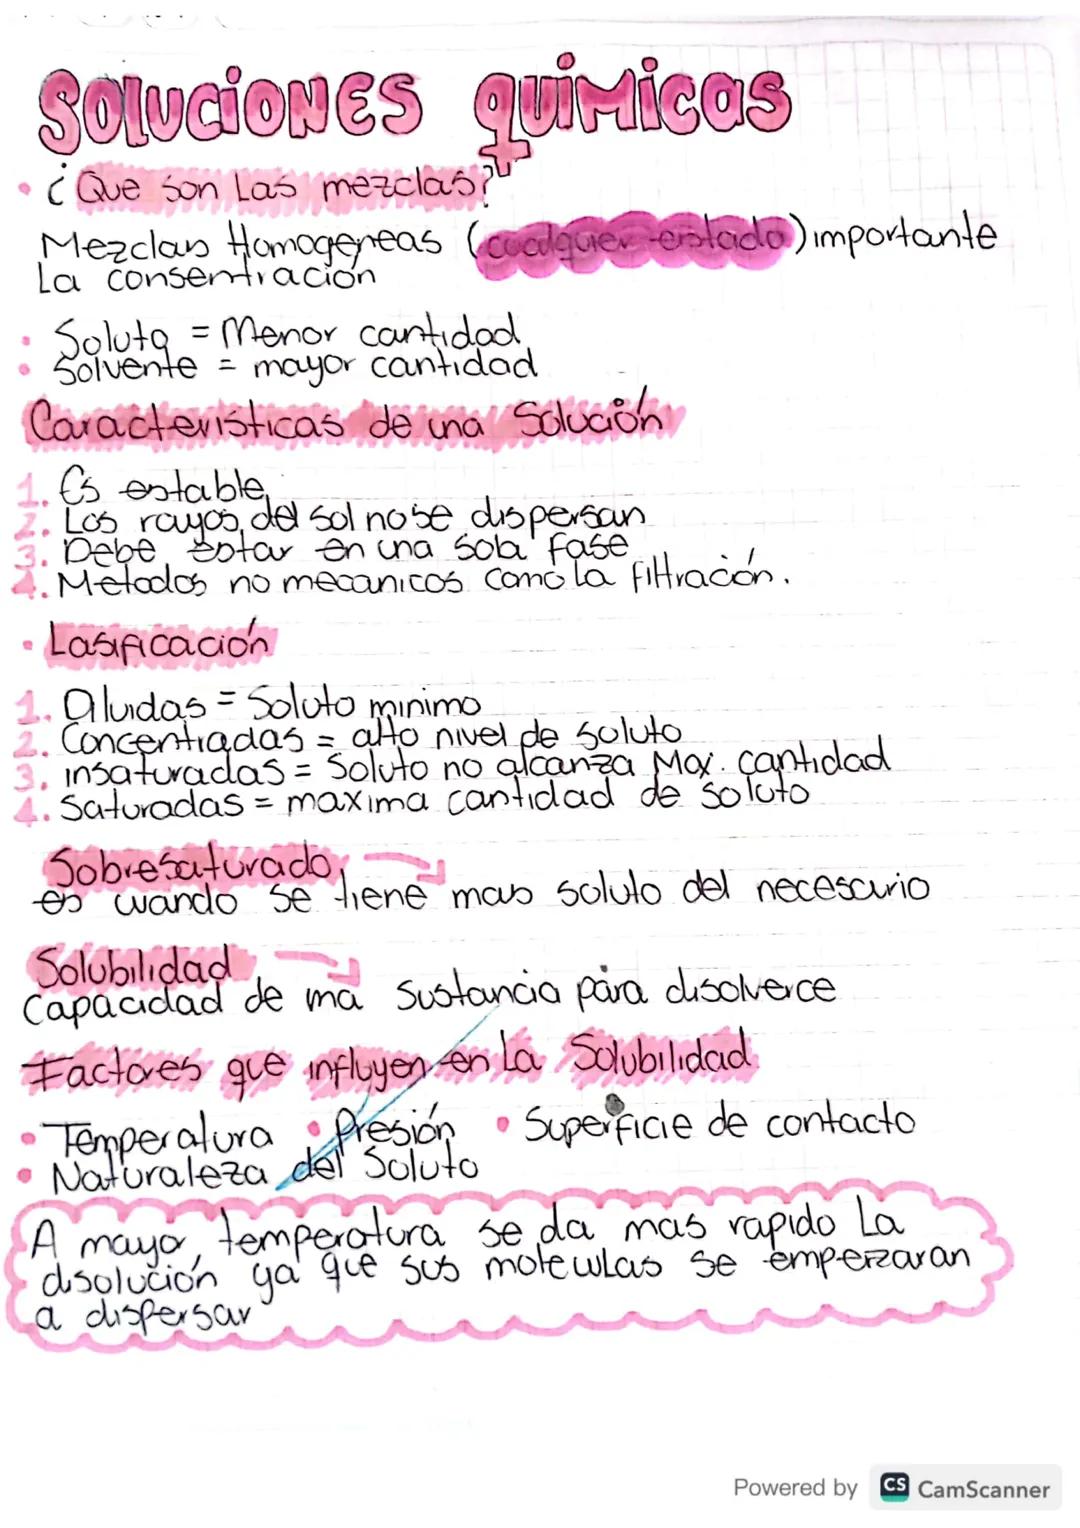 SOLUCIONES QUIMICAS
• ¿Que son Las mezclas?
Mezclas Homogeneas (cualquier estado) importante
La consentracion
• Soluto = Menor cantidad
• Solvente = mayor cantidad
Características de una Solución
1. Es estable
2. Los rayos del sol no se dispersan
3. Debe estar en una sola fase
4. Metodos no mecanicos como la filtración.
• Lasificación
1. Diluidas = Soluto minimo
2. Concentradas = alto nivel de soluto
3. insaturadas = Soluto no alcanza Max. cantidad
4. Saturadas = maxima cantidad de soluto
Sobresaturado
es cuando se tiene mas soluto del necesario
Solubilidad
Capacidad de una sustancia para disolverce
Factores que influyen en La Solubilidad
• Temperatura • Presión • Superficie de contacto
• Naturaleza del Soluto
A mayor temperatura se da mas rapido La
disolución ya que sus moleculas se emperzaran
a dispersar
Powered by CS CamScanner